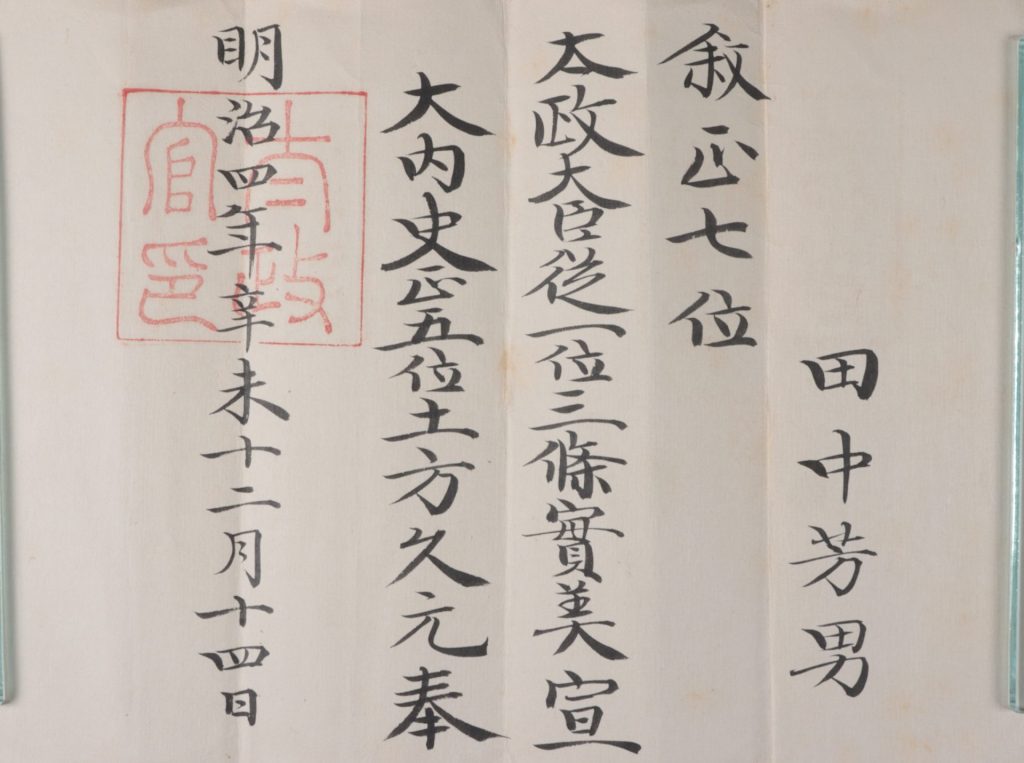 田中芳男
敘正七位
太政大臣從一位三條實美宣
大内史正五位土方久元奉
明治四年辛未十二月十四日
太政
官印